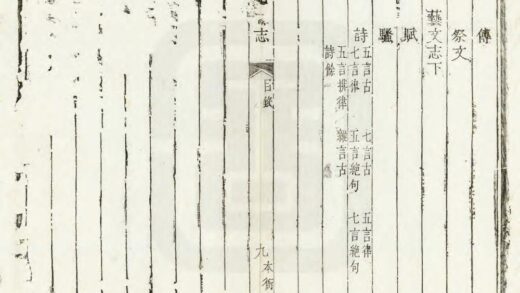 傳
祭文
藝文志下
賦
騷
詩
五言古 七言古 五言律
七言律 五言絕句 七言絕句
五言排律 雜言古
詩餘
志
目錄
九 本衙